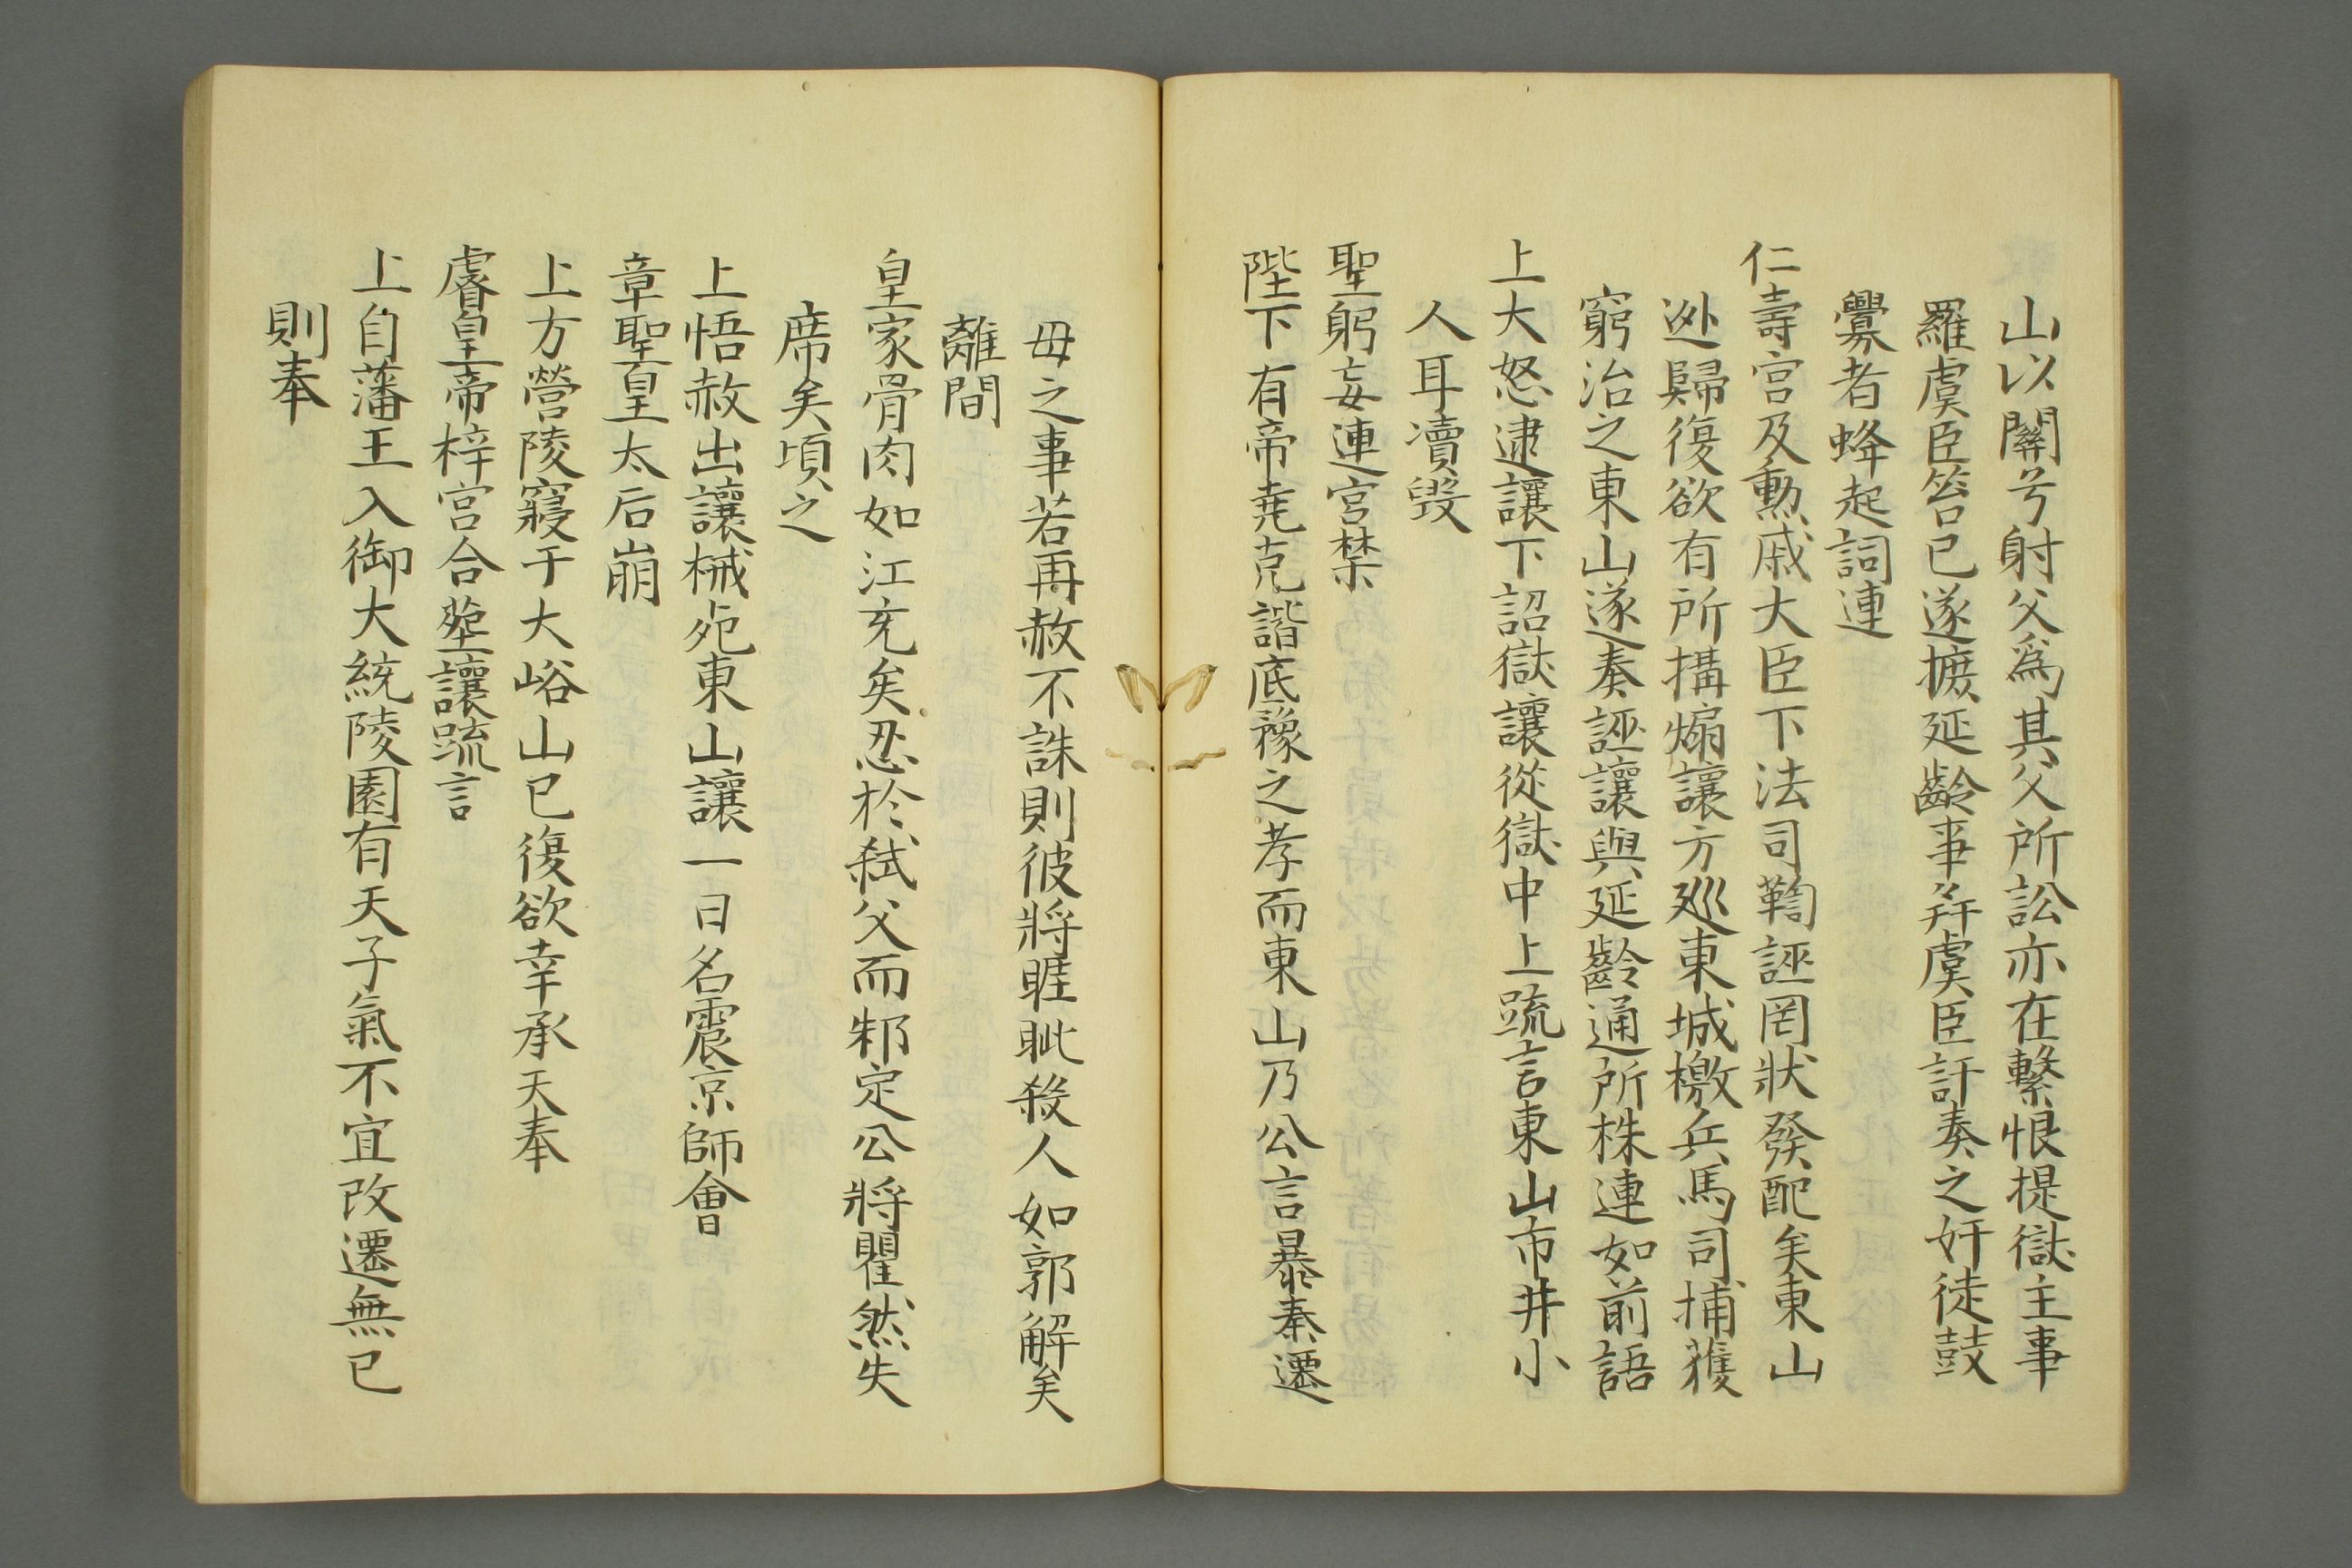 山以關弓射父爲其父所訟亦在繫恨提獄主事
羅虞臣笞已遂摭延齡事幷虞臣訐奏之奸徒鼓
釁者蜂起詞連
仁壽宮及勳戚大臣下法司鞫誣罔狀發配矣東山
迯歸復欲有所搆煽讓方廵東城檄兵馬司捕獲
窮治之東山遂奏誣讓與延齡通所株連如前語
上大怒逮讓下詔獄讓從獄中上䟽言東山市井小
人耳凟毀
聖躬妄連宮禁
陛下有帝堯克諧底豫之孝而東山乃公言暴秦遷
母之事若再赦不誅則彼將睚眦殺人如郭解矣
離間
皇家骨肉如江充矣忍於弑父而邾定公將瞿然失
席矣頃之
上悟赦出讓械死東山讓一日名震京師會
章聖皇太后崩
上方營陵寢于大峪山已復欲幸承天奉
睿皇帝梓宮合塟讓䟽言
上自藩王入御大統陵園有天子氣不宜改遷無已
則奉